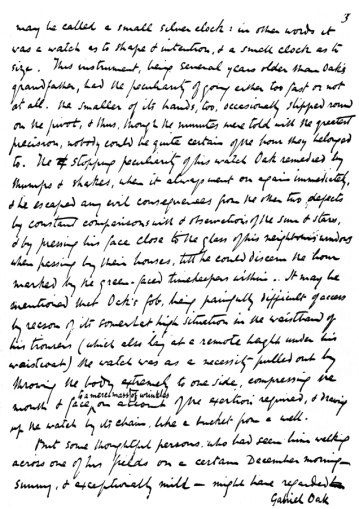 3
may be called a small silver clock: in other words it
was a watch as to shape & intention, & a small clock as to
size. This instrument, being several years older than Oak's
grandfather, had the peculiarity of going either too fast or not
at all. The smaller of its hands, too, occasionally slipped round
on the pivot, & thus, though the minutes were told with the greatest
precision, nobody could be quite certain of the hour they belonged
to. The stopping peculiarity of his watch Oak remedied by
thumps & shakes, when it always went on again immediately,
& he escaped any evil consequences from the other two defects
by constant comparisons with & observations of the sun & stars,
& by pressing his face close to the glass of his neighbours' windows
when passing by their houses, till he could discern the hour
marked by the green-faced timekeepers within. It may be
mentioned that Oak's fob, being painfully difficult of access
by reason of its somewhat high situation in the waistband of
his trousers (which also lay at a remote height under his
waistcoat) the watch was as a necessity pulled out by
throwing the body extremely to one side, compressing the
mouth & face to a mere mass of wrinkles on account of the exertion required, & drawing
up the watch by its chain, like a bucket from a well.
But some thoughtful persons, who had seen him walking
across one of his fields on a certain December morning—
sunny, & exceptionally mild — might have regarded
Gabriel Oak